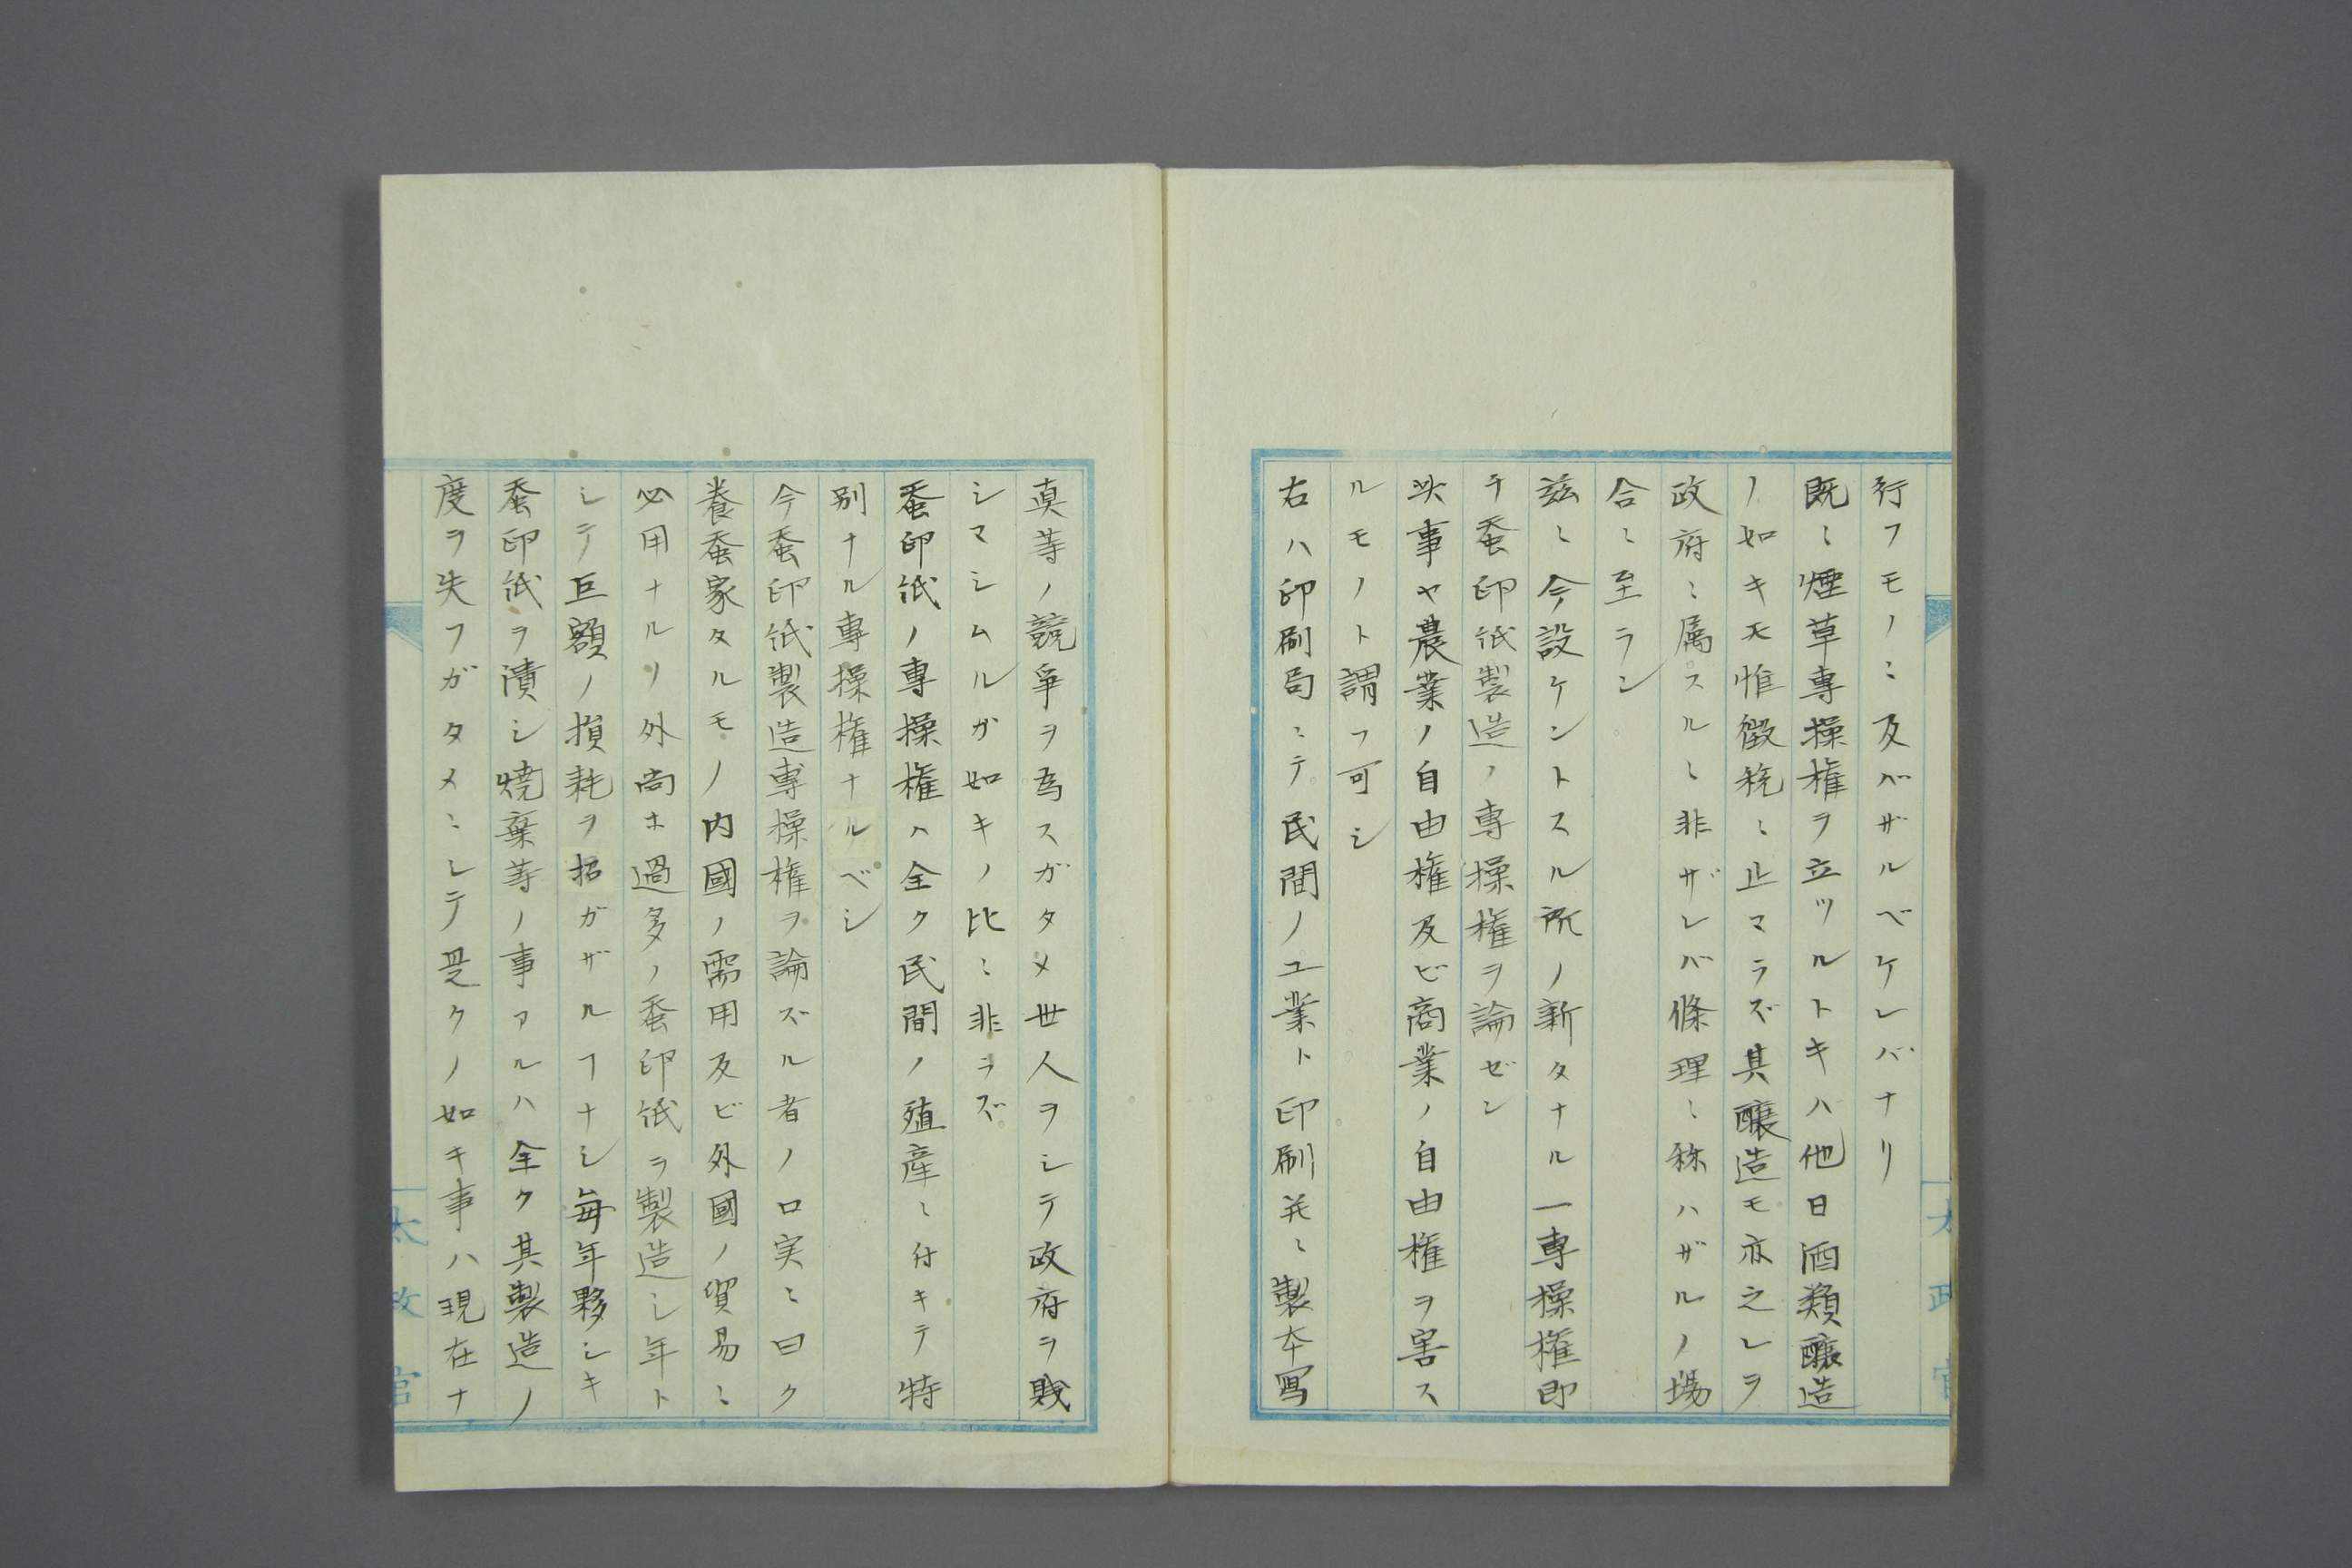 行フモノニ及バザルベケレバナリ
既ニ煙草專操権ヲ立ツルトキハ他日酒類醸造
ノ如キモ惟徴税ニ止マラズ其醸造モ亦之レヲ
政府ニ属スルニ非ザレバ條理ニ称ハザルノ場
合ニ至ラン
茲ニ今設ケントスル所ノ新タナル一専操権即
チ蚕印紙製造ノ専操権ヲ論ゼン
此事ヤ農業ノ自由権及ビ商業ノ自由権ヲ害ス
ルモノト謂フ可シ
右ハ印刷局ニテ民間ノ工業ト印刷并ニ製本写
真等ノ競爭ヲ為スガタメ世人ヲシテ政府ヲ賎
シマシムルガ如キノ比ニ非ラズ
蚕印紙ノ專操権ハ全ク民間ノ殖産ニ付キテ特
別ナル專操権ナルベシ
今蚕印紙製造專操権ヲ論ズル者ノ口実ニ曰ク
養蚕家タルモノ内國ノ需用及ビ外國ノ貿易ニ
必用ナルヨリ外尚ホ過多ノ蚕印紙ヲ製造シ年ト
シテ巨額ノ損耗ヲ招ガザルヿナシ毎年夥シキ
蚕印紙ヲ漬シ燒棄等ノ事アルハ全ク其製造ノ
度ヲ失フガタメニシテ是クノ如キ事ハ現在ナ
太政官
太政官